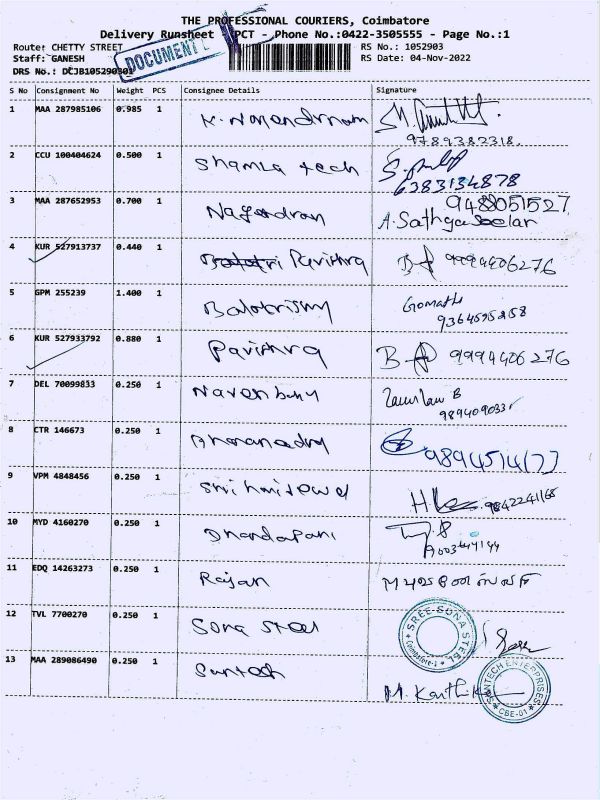 THE PROFESSIONAL COURIERS, Coimbatore
Delivery Runsheet - PCT - Phone No.:0422-3505555 - Page No.:1
Route: CHETTY STREET RS No.: 1052903
Staff: GANESH DOCUMENT RS Date: 04-Nov-2022
DRS No.: DCJB105290301
S No Consignment No Weight PCS Consignee Details Signature
1 MAA 287985106 0.985 1 K. Narendiran
9789382318.
2 CCU 100404624 0.500 1 Shamla tech
6383134878
3 MAA 287652953 0.700 1 Nagendran 9488051527
A. Sathya Seelan
4 KUR 527913737 0.440 1 Pavithra 9994406276
5 GPM 255239 1.400 1 Gomathi
9364595258
6 KUR 527933792 0.880 1 Pavithra 9994406276
7 DEL 70099833 0.250 1 Navenbabu
8 CTR 146673 0.250 1
9 VPM 4848456 0.250 1 9842241168
10 MYD 4160270 0.250 1 Dhandapani
11 EDQ 14263273 0.250 1 Rajan
12 TVL 7700270 0.250 1 Sona Steel SREE SONA STEEL
Coimbatore-1
13 MAA 289086490 0.250 1 Suntech SUNTECH ENTERPRISES
M. Karthik CBE-01